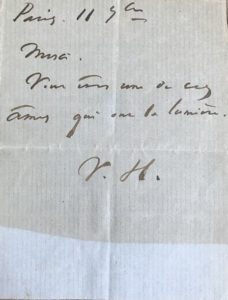 Paris, 11 9bre
Merci.
Vous êtes une de ces
âmes qui ont la lumière.
V. H.